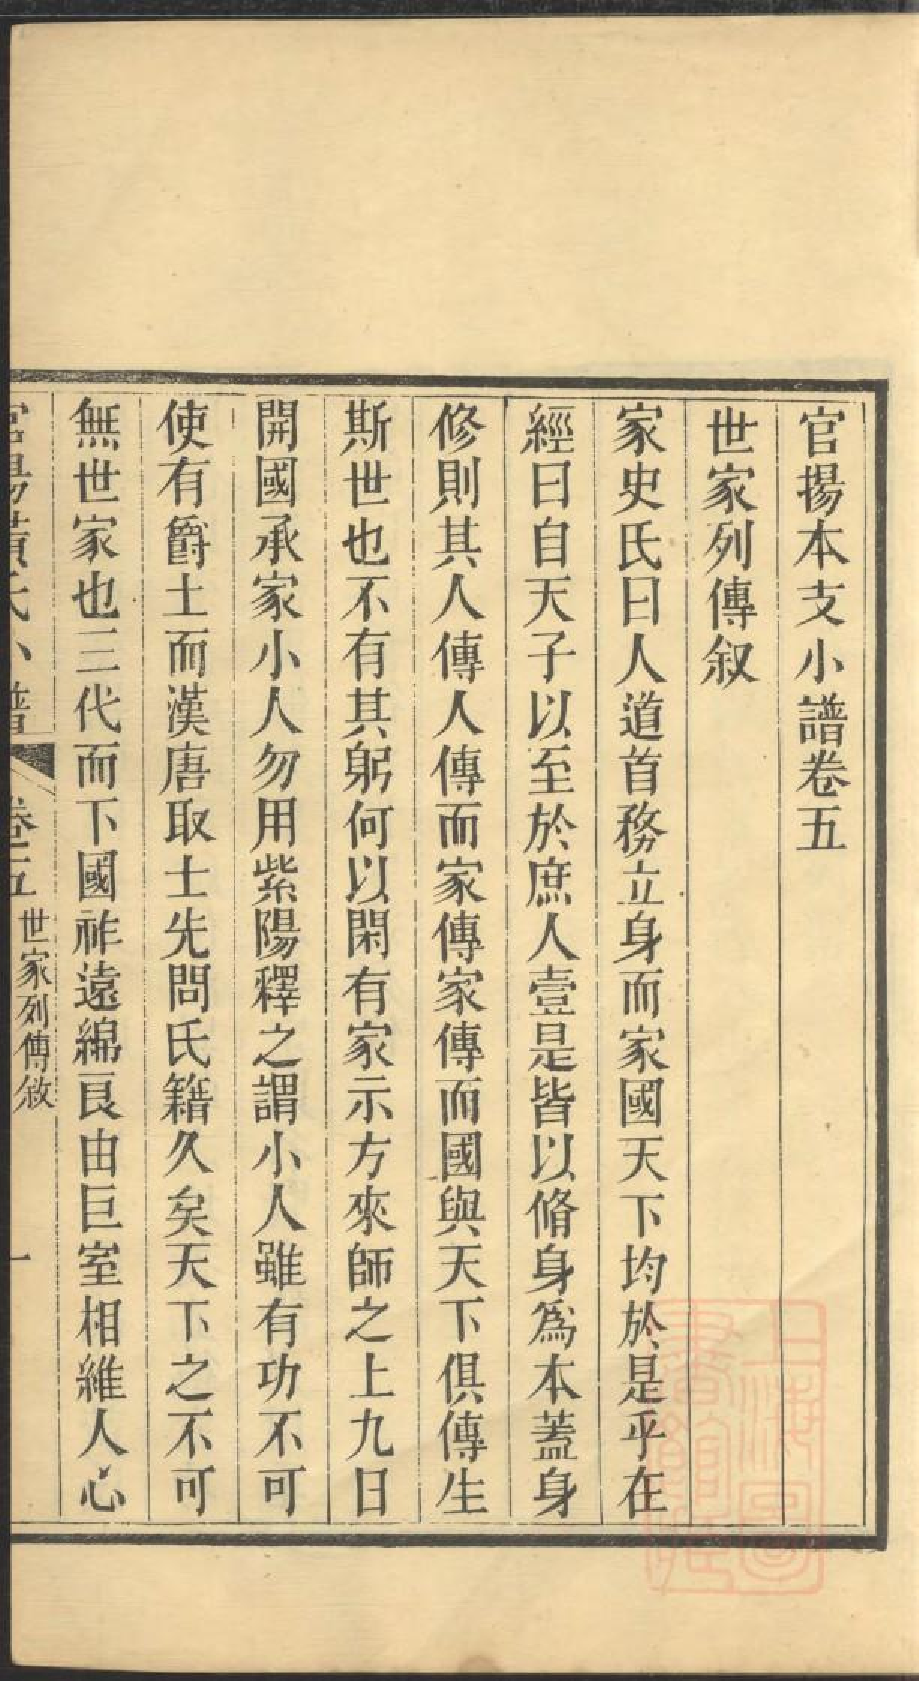 官揚本支小譜卷五
世家列傳叙
家史氏曰人道首務立身而家國天下均於是乎在
經曰自天子以至於庶人壹是皆以脩身為本蓋身
修則其人傳人傳而家傳家傳而國與天下俱傳生
斯世也不有其躬何以閑有家示方來師之上九曰
開國承家小人勿用紫陽釋之謂小人雖有功不可
使有爵土而漢唐取士先問氏籍久矣天下之不可
無世家也三代而下國祚遠綿良由巨室相維人心
官揚黃氏小譜 卷五 世家列傳敘 一
上海圖書館藏